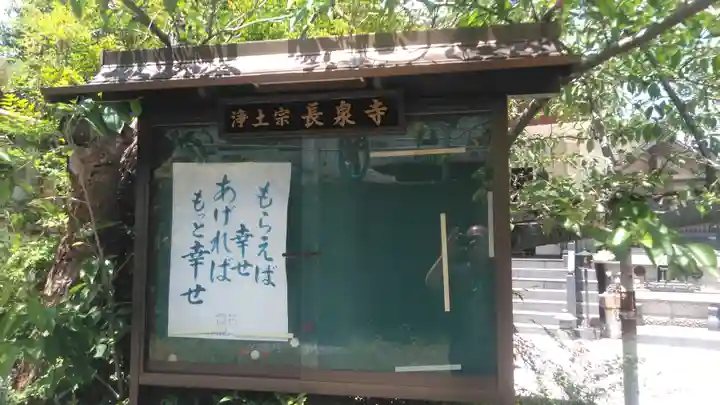 浄土宗 長泉寺
もらえば
幸せ
あげれば
もっと幸せ